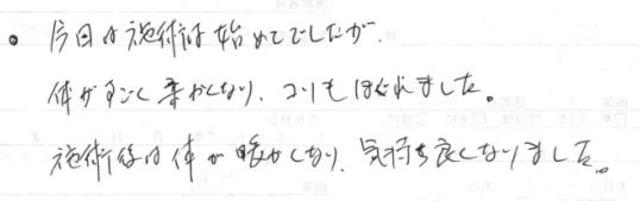 。今日は施術は始めてでしたが、
体がすごく柔かくなり、コリもほぐれました。
施術後は体が暖かくなり、気持ち良くなりました。